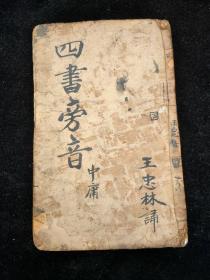 四書旁音
中庸
王忠林誦